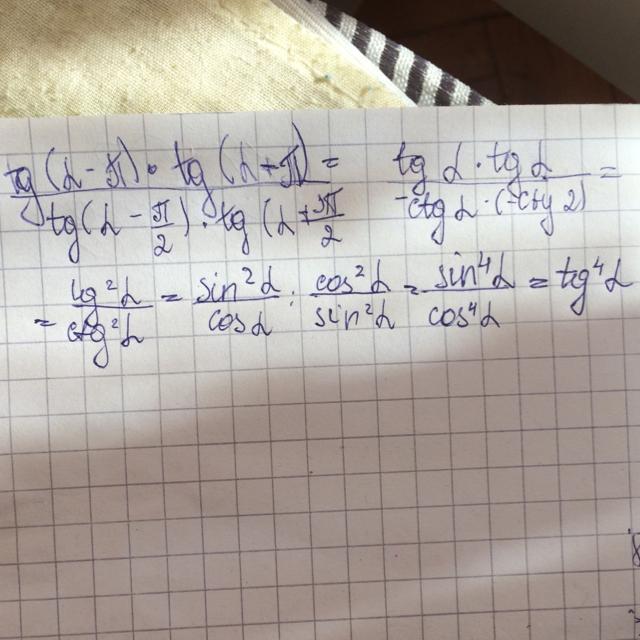 tg(α-π)·tg(α+π) / tg(α-π/2)·tg(α+π/2 = tgα·tgα / -ctgα·(-ctgα) =
= tg²α / ctg²α = sin²α / cosα : cos²α / sin²α = sin⁴α / cos⁴α = tg⁴α